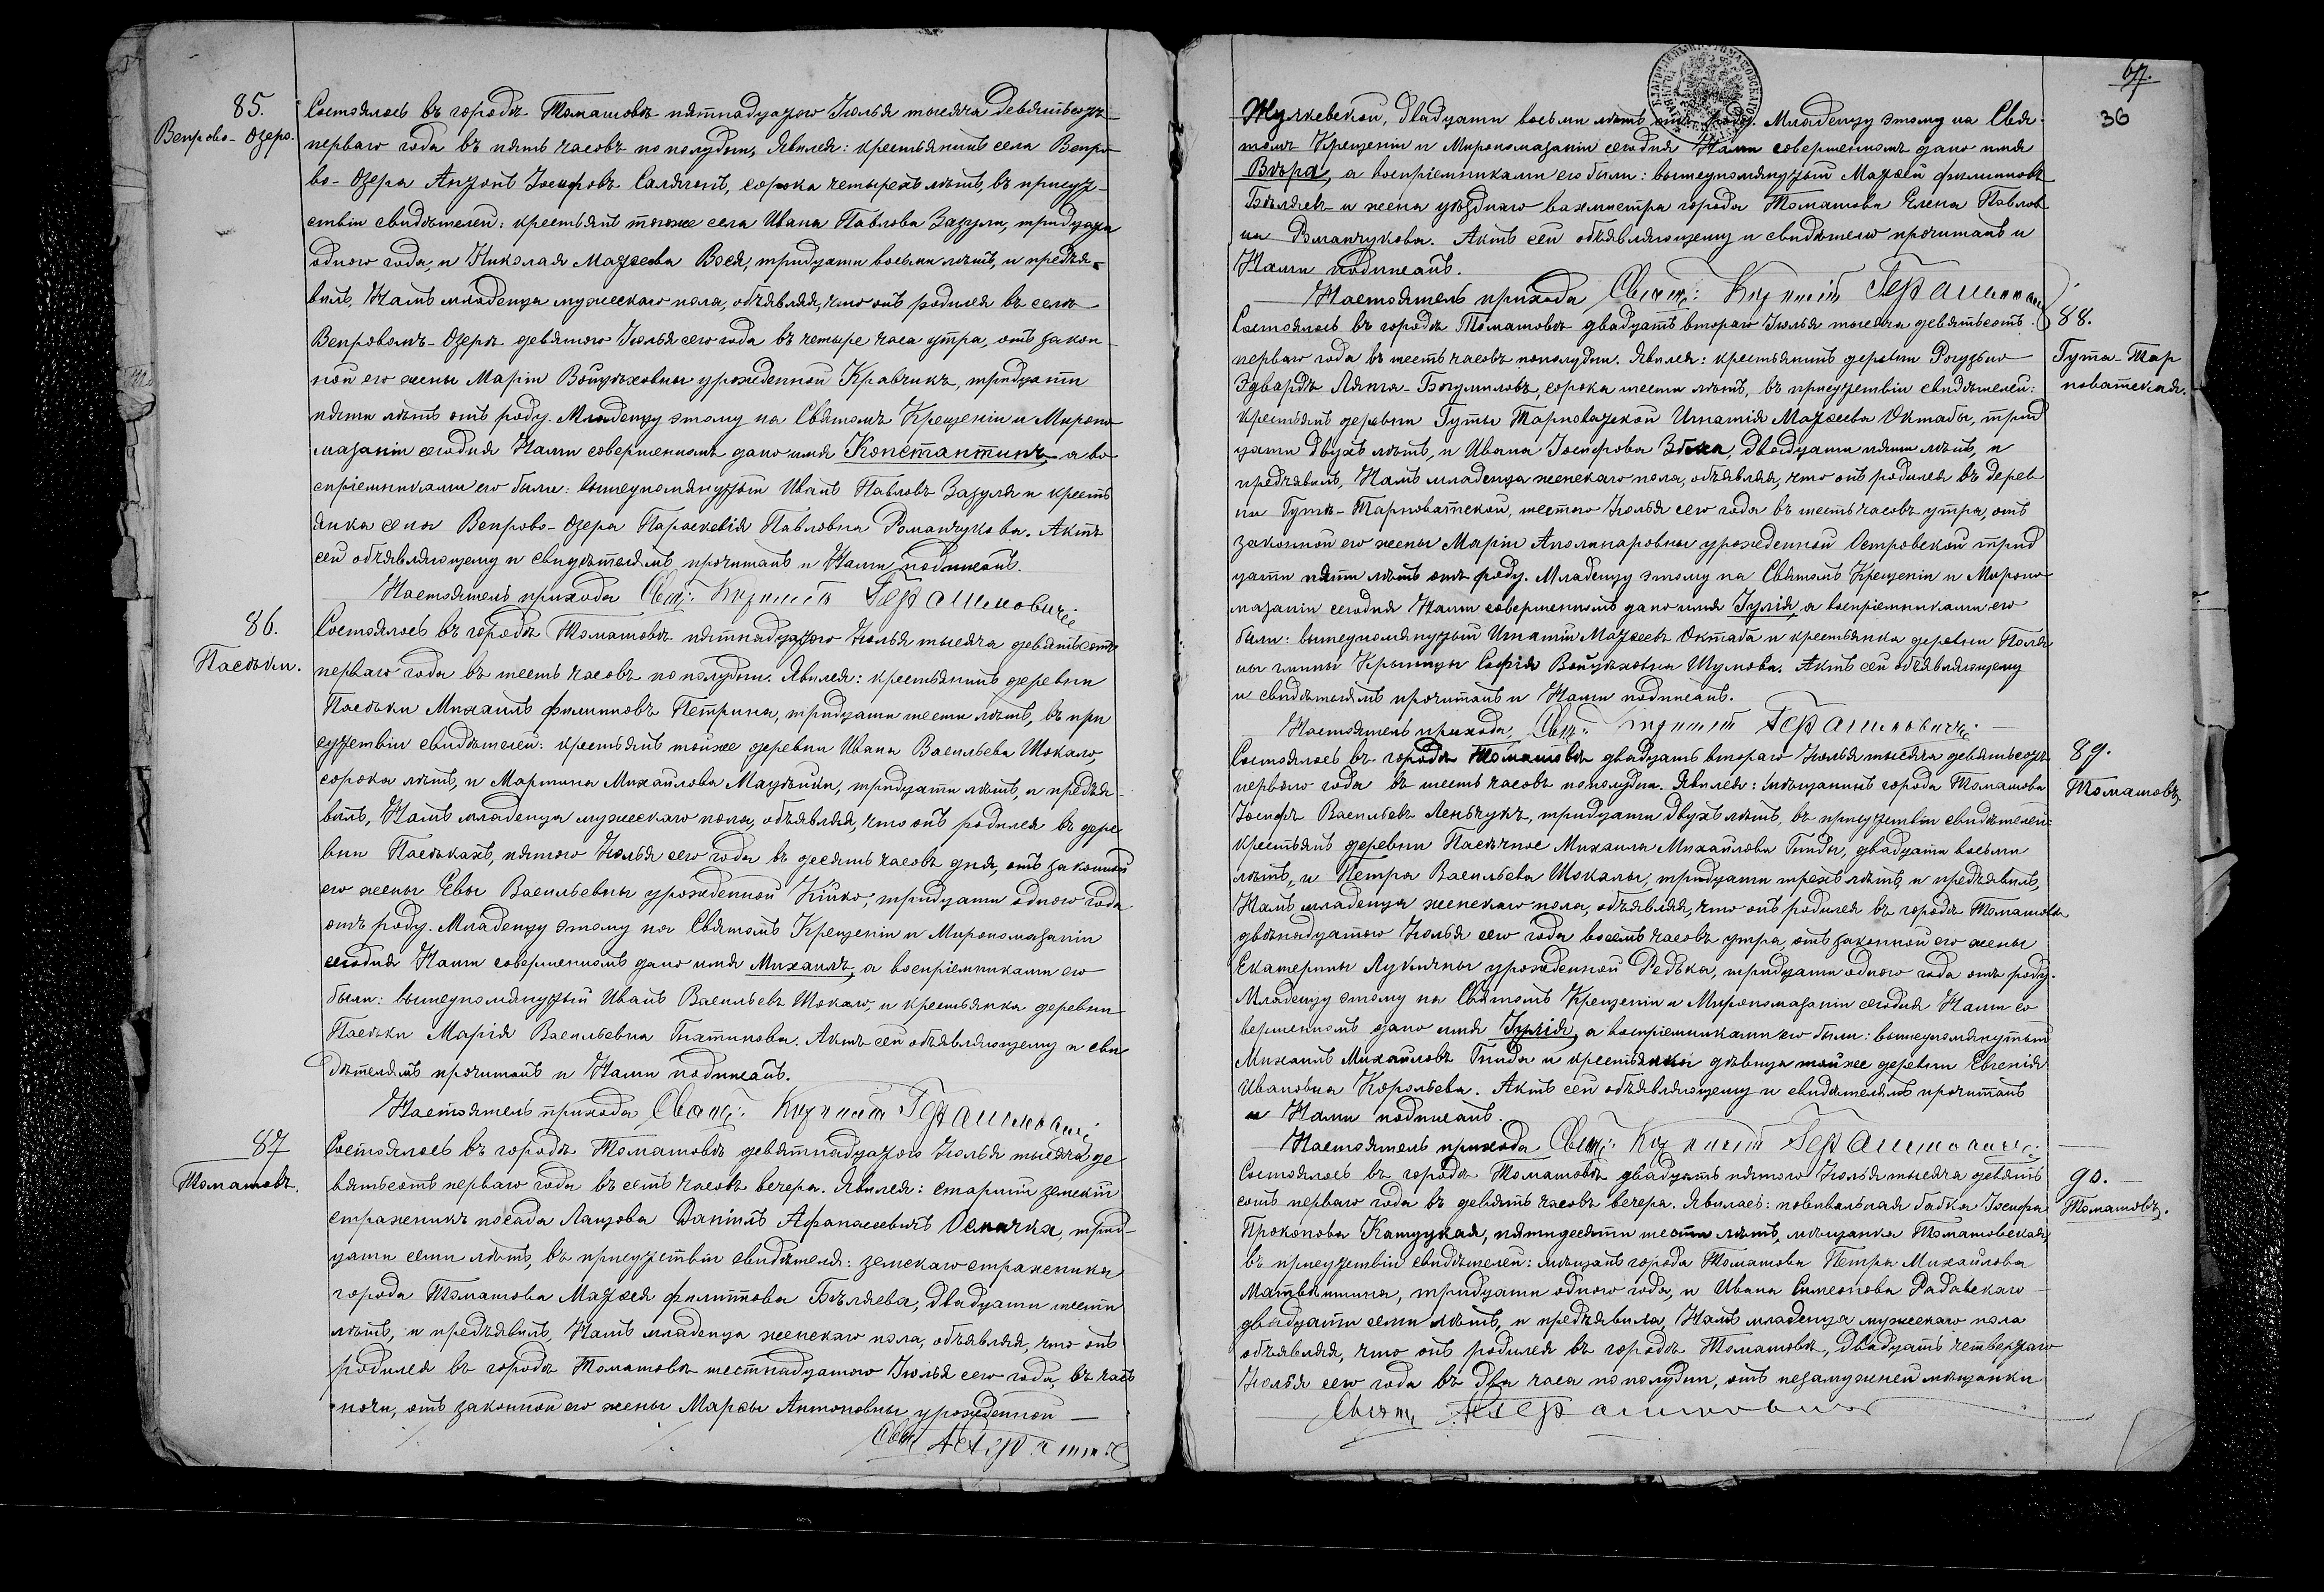 85.
Вепрово-Озеро.
Состоялось въ городѣ Томашовѣ пятнадцатого Іюлья тысяча девятьсотъ
перваго года въ пять часовъ пополудни, Явился: крестьянинъ села Вепро-
во-Озера Антонъ Іосифовъ Салягонъ, сорока четырехъ лѣтъ, въ присут-
ствіи свидѣтелей: крестьянъ тогоже села Ивана Павлова Зазули, тридцати
одного года, и Николая Матѳеева Вося, тридцати восьми лѣтъ, и предъя-
вилъ, Намъ младенца мужескаго пола, объявляя, что онъ родился въ селѣ
Вепровомъ-Озерѣ девятого Іюлья сего года въ четыре часа утра, отъ закон
ной его жены Маріи Войцѣховны урожденной Кравчикъ, тридцати
пяти лѣтъ отъ роду. Младенцу этому на Святомъ Крещеніи и Миропо-
мазаніи сегодня Нами совершенномъ дано имя Константинъ, а во
спріемниками его были: вышеупомянутый Иванъ Павловъ Зазуля и кресть
янка села Вепрово-Озера Параскевія Павловна Романчукова. Актъ
сей объявляющему и свидѣтелямъ прочитанъ и Нами подписанъ.
Настоятель прихода Свящ: Герашимовичъ
86.
Пасѣки.
Состоялось въ городѣ Томашовѣ пятнадцатого Іюлья тысяча девятьсотъ
перваго года въ шесть часовъ пополудни. Явился: крестьянинъ деревни
Пасѣки Михаилъ Филиповъ Петрина, тридцати шести лѣтъ, въ при
сутствіи свидѣтелей: крестьянъ тойже деревни Ивана Васильева Шокало,
сорока лѣтъ, и Мартина Михайлова Мацѣйки, тридцати лѣтъ, и предъя-
вилъ, Намъ младенца мужескаго пола, объявляя, что онъ родился въ дере
вни Пасѣкахъ, пятого Іюлья сего года въ десять часовъ дня, отъ законной
его жены Евы Васильевны урожденной Кійко, тридцати одного года
отъ роду. Младенцу этому на Святомъ Крещеніи и Миропомазаніи
сегодня Нами совершенномъ дано имя Михаилъ, а воспріемниками его
были: вышеупомянутый Иванъ Васильевъ Шокало, и крестьянка деревни
Пасѣки Марія Васильевна Гнатикова. Актъ сей объявляющему и сви
дѣтелямъ прочитанъ и Нами подписанъ.
Настоятель прихода Свящ: Герашимовичъ
87
Томашовъ.
Состоялось въ городѣ Томашовѣ девятнадцатого Іюлья тысяча де
вятьсотъ перваго года въ семь часовъ вечера. Явился: старшій земскій
стражникъ посада Лащова Даніилъ Афанасьевичъ Осначка, трид-
цати семи лѣтъ, въ присутствіи свидѣтеля: земскаго стражника
города Томашова Матѳея Филиппова Бѣляева, двадцати шести
лѣтъ, и предъявилъ, Намъ младенца женскаго пола, объявляя, что онъ
родился въ городѣ Томашовѣ шестнадцатого Іюлья сего года, въ часъ
ночи, отъ законной его жены Марѳы Антоновны урожденной —
67.
36
Жулкевской, двадцати восьми лѣтъ отъ роду. Младенцу этому на Свя
томъ Крещеніи и Миропомазаніи сегодня Нами совершенномъ дано имя
Вѣра, а воспріемниками его были: вышеупомянутый Матѳей Филиповъ
Бѣляевъ и жена уѣзднаго вахмистра города Томашова Елена Павлов
на Романчукова. Актъ сей объявляющему и свидѣтелю прочитанъ и
Нами подписанъ.
Настоятель прихода Свящ: Герашимович
88.
Гута-Тар
новатская.
Состоялось въ городѣ Томашовѣ двадцать второго Іюлья тысяча девятьсотъ
перваго года въ шесть часовъ пополудни. Явился: крестьянинъ деревни Рогузьно
Эдвардъ Ляхта-Богумиловъ, сорока шести лѣтъ, въ присутствіи свидѣтелей:
крестьянъ деревни Гуты Тарноватской Игнатія Матѳеева Октабы, трид
цати двухъ лѣтъ, и Ивана Іосифова, двадцати пяти лѣтъ, и
предъявилъ, Намъ младенца женскаго пола, объявляя, что онъ родился въ дерев
ни Гутѣ-Тарноватской, шестого Іюлья сего года въ шесть часовъ утра, отъ
законной его жены Маріи Аполинаровны урожденной Островской трид
цати пяти лѣтъ отъ роду. Младенцу этому на Святомъ Крещеніи и Миропо-
мазаніи сегодня Нами совершенномъ дано имя Іулія, а воспріемниками его
были: вышеупомянутый Игнатій Матѳеевъ Октаба и крестьянка деревни Поля
ны гмины Крыницы Софія Войцѣховна Шумова. Актъ сей объявляющему
и свидѣтелямъ прочитанъ и Нами подписанъ.
Настоятель прихода, Свящ: Герашимовичъ
89.
Томашовъ.
Состоялось въ городѣ Томашовѣ двадцать второго Іюлья тысяча девятьсотъ
перваго года въ шесть часовъ пополудни. Явился: мѣщанинъ города Томашова
Іосифъ Васильевъ Леньчукъ, тридцати двухъ лѣтъ, въ присутствіи свидѣтелей:
крестьянъ деревни Пасѣчное Михаила Михайлова Гнида, двадцати восьми
лѣтъ, и Петра Васильева Шокалы, тридцати трехъ лѣтъ, и предъявилъ,
Намъ младенца женскаго пола, объявляя, что онъ родился въ городѣ Томашовѣ
двѣнадцатого Іюлья сего года восемь часовъ утра, отъ законной его жены
Екатерины Лукичны урожденной Редька, тридцати одного года отъ роду.
Младенцу этому на Святомъ Крещеніи и Миропомазаніи сегодня Нами со
вершенномъ дано имя Іулія, а воспріемниками его были: вышеупомянутый
Михаилъ Михайловъ Гнида и крестьянка дѣвица тойже деревни Евгенія
Ивановна Королева. Актъ сей объявляющему и свидѣтелямъ прочитанъ
и Нами подписанъ.
Настоятель прихода Свящ: Герашимовичъ
90.
Томашовъ.
Состоялось въ городѣ Томашовѣ двадцать пятого Іюлья тысяча девять
сотъ перваго года въ девять часовъ вечера. Явилась: повивальная бабка Іосифа
Прокопова Кашуцкая, пятидесяти шести лѣтъ, мѣщанка Томашовская,
въ присутствіи свидѣтелей: мѣщанъ города Томашова Петра Михайлова
Матвѣишина, тридцати одного года, и Ивана Симеонова Радавскаго
двадцати семи лѣтъ, и предъявила, Намъ младенца мужескаго пола
объявляя, что онъ родился въ городѣ Томашовѣ, двадцать четвертаго
Іюлья сего года въ два часа пополудни, отъ незамужней мѣщанки
Свящ. Герашимович